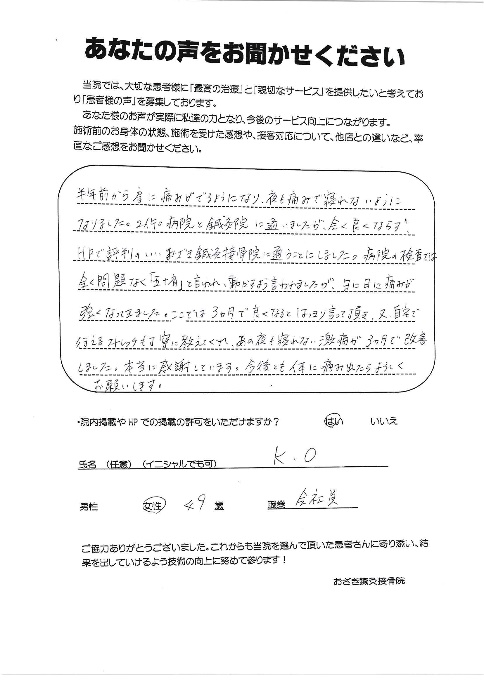 あなたの声をお聞かせください
当院では、大切な患者様に「最高の治療」と「親切なサービス」を提供したいと考えてお
り「患者様の声」を募集しております。
あなた様のお声が実際に私達の力となり、今後のサービス向上につながります。
施術前のお身体の状態、施術を受けた感想や、接客対応について、他店との違いなど、率
直なご感想をお聞かせください。
半年前から肩に痛みがでるようになり、夜も痛みで寝れないように
なりました。2件の病院と鍼灸院に通いましたが、全く良くならず、
HPで評判のいいおざき鍼灸接骨院に通うことにしました。病院の検査では
全く問題なく「五十肩」と言われ、動かすよう言われましたが、日に日に痛みが
強くなってきました。ここでは3カ月で良くなるとはっきり言って頂き、又、自宅で
行えるストレッチも丁寧に教えてくれ、あの夜も寝れない激痛が3カ月で改善
しました。本当に感謝しています。今後とも体に痛み出たらよろしく
お願いします。
・院内掲載や HP での掲載の許可をいただけますか？ はい いいえ
氏名 （任意） （イニシャルでも可） K.O
男性 女性 49 歳 職業 会社員
ご協力ありがとうございました。これからも当院を選んで頂いた患者さんに寄り添い、結
果を出していけるよう技術の向上に努めて参ります！
おざき鍼灸接骨院